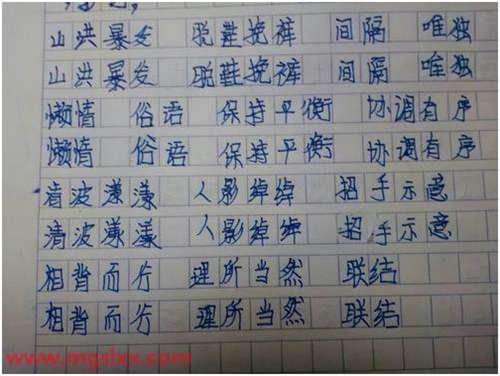 山洪暴发 脱鞋挽裤 间隔 唯独
山洪暴发 脱鞋挽裤 间隔 唯独
懒惰 俗语 保持平衡 协调有序
懒惰 俗语 保持平衡 协调有序
清波漾漾 人影绰绰 招手示意
清波漾漾 人影绰绰 招手示意
相背而行 理所当然 联结
相背而行 理所当然 联结
www.mgslxx.com